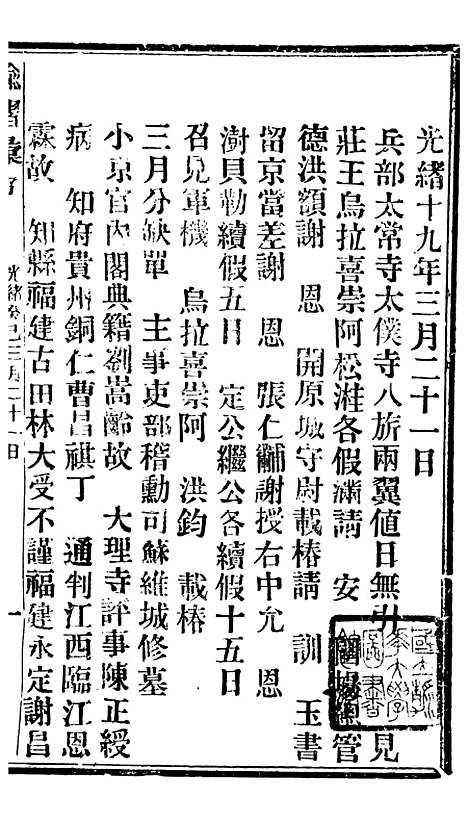 光緒十九年三月二十一日
兵部太常寺太僕寺八旂兩翼値日無引見
莊王烏拉喜崇阿松溎各假滿請　安　管
德洪額謝　恩　開原城守尉載椿請　訓　玉書
留京當差謝　恩　張仁黼謝授右中允　恩
澍貝勒續假五日　定公繼公各續假十五日
召見軍機　烏拉喜崇阿　洪鈞　載椿
三月分缺單　主事吏部稽勳司蘇維城修墓
小京官內閣典籍劉嵩齡故　大理寺評事陳正綬
病　知府貴州銅仁曹昌祺丁　通判江西臨江恩
霖故　知縣福建古田林大受不謹福建永定謝昌
諭摺彙存
光緒癸巳三月二十一日
一